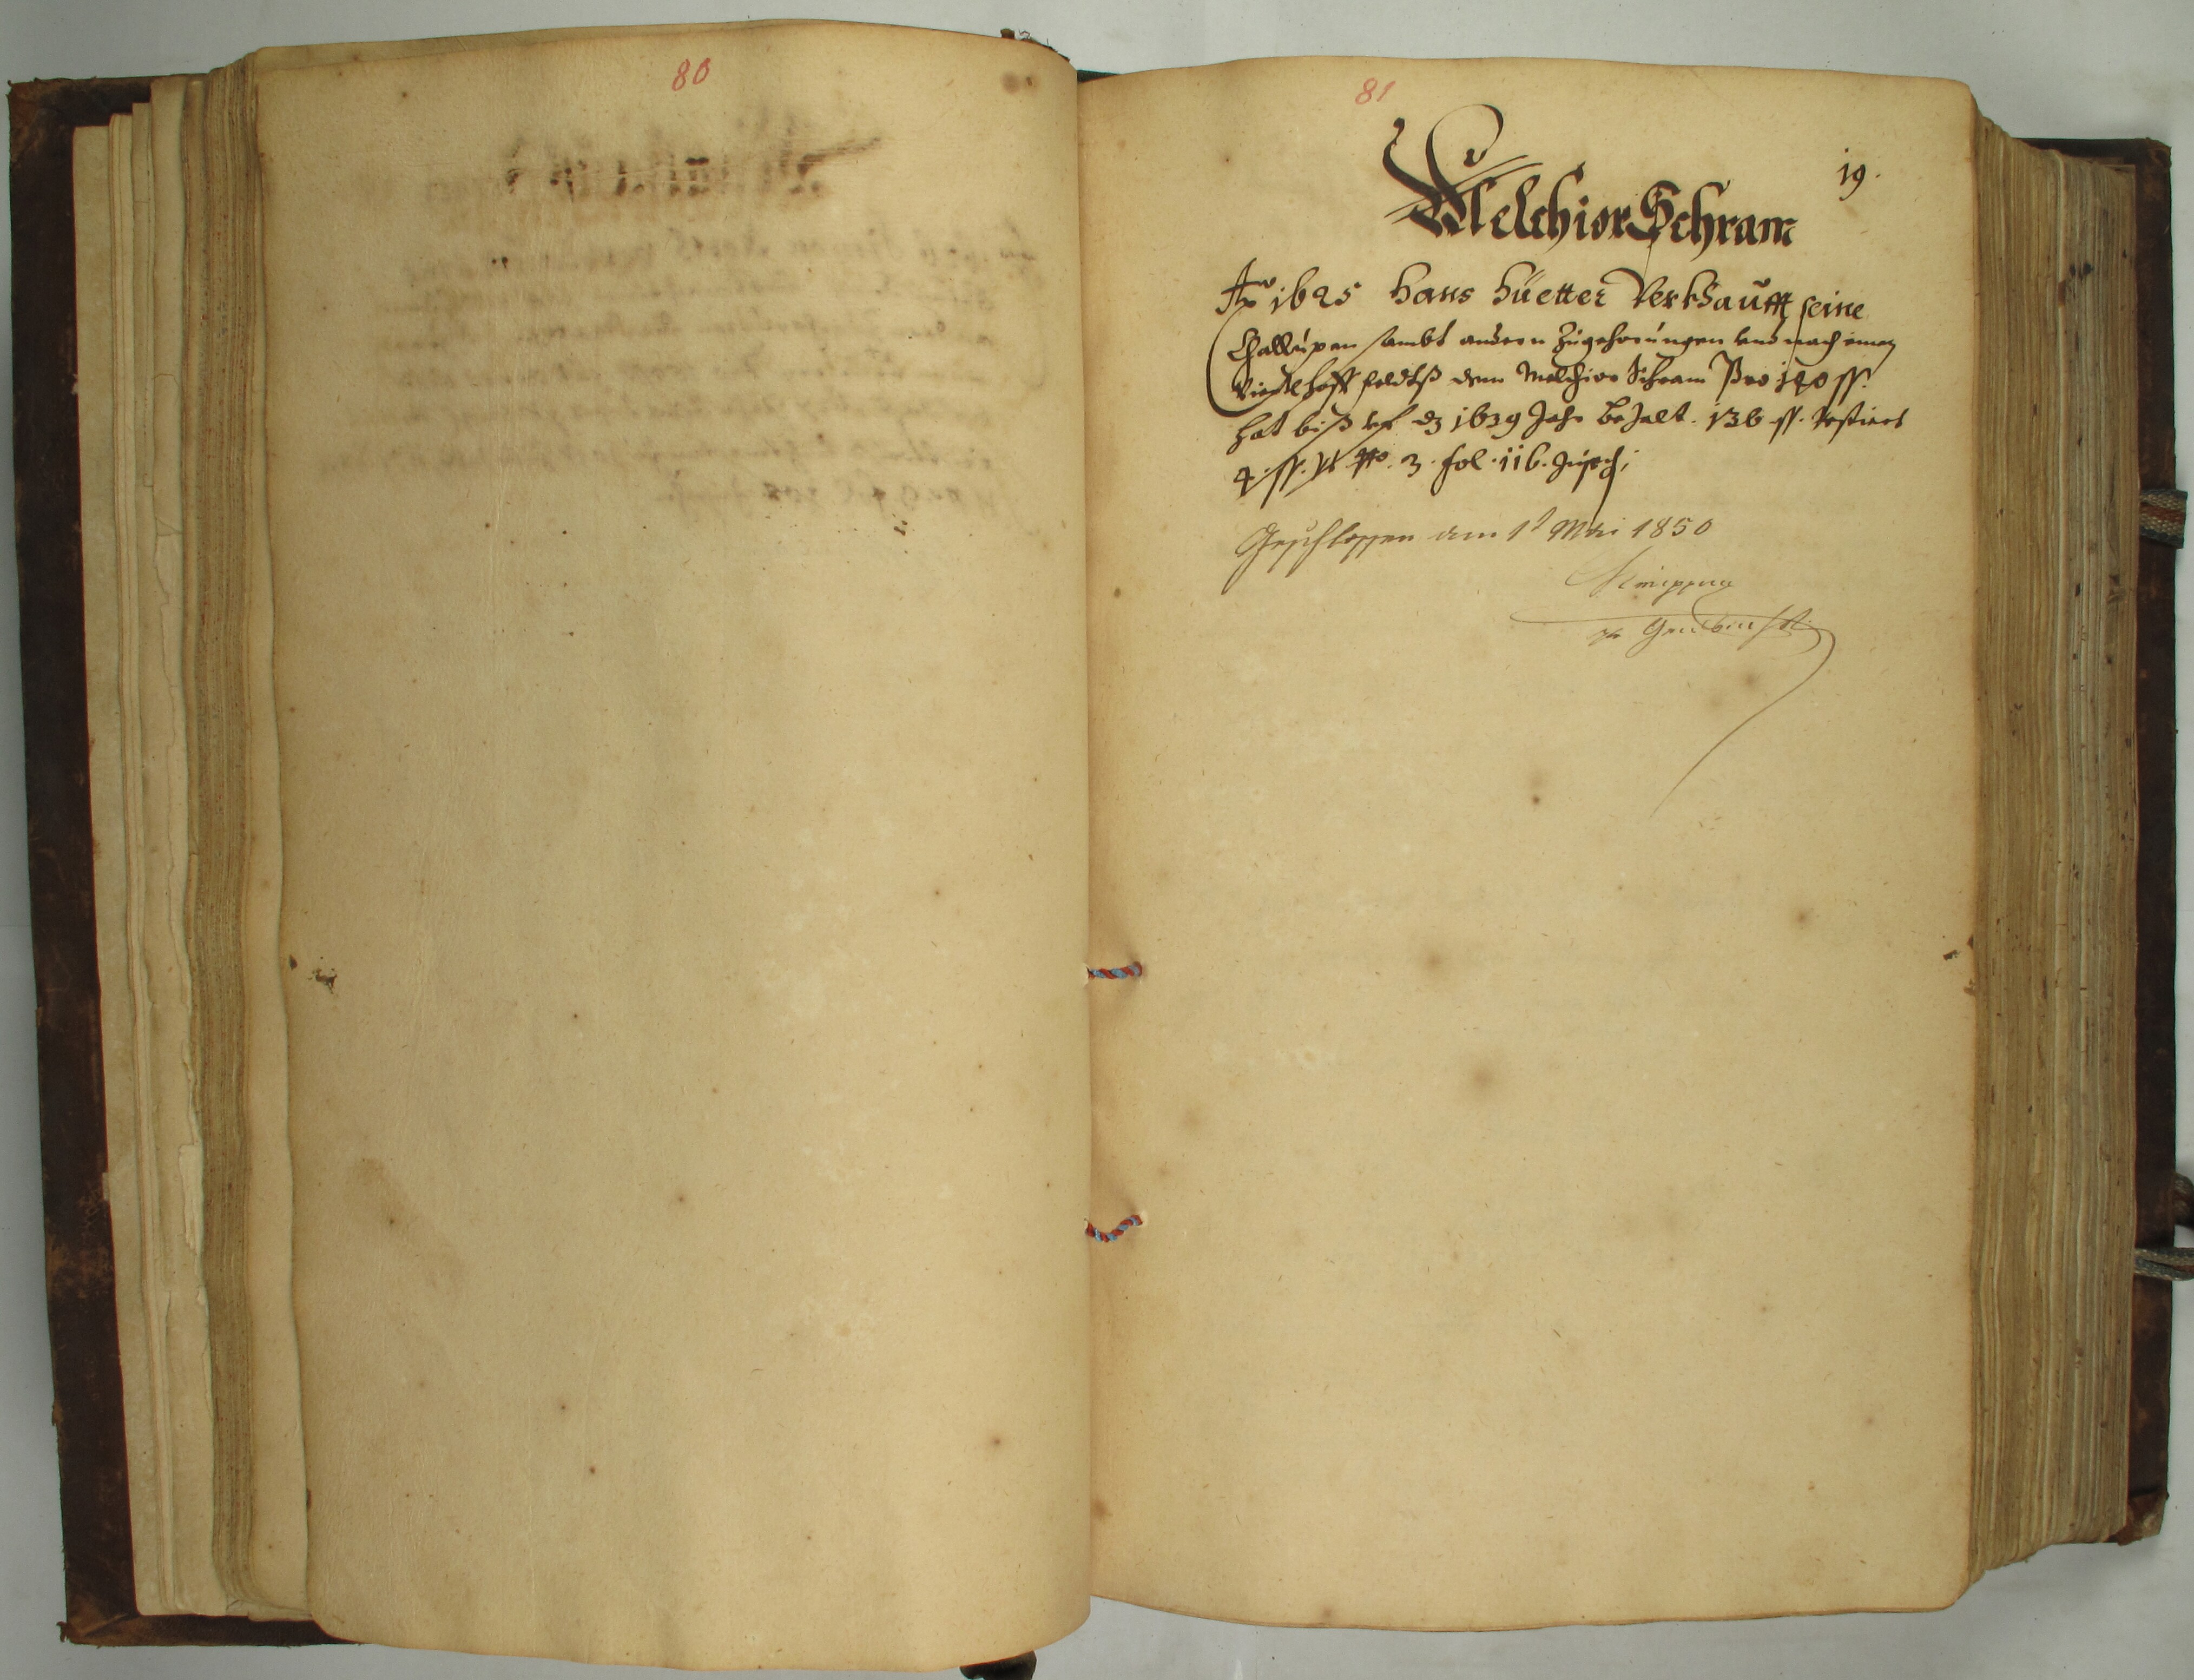 80
81
19.
Melchior Schram
Ao 1625 Hans Hüetter Verkhaufft seine
Challupen sambt andern Zugehorungen und nach einen
Viertlhoff feldtß dem Melchior Schram Pro 140 ss.
hat biß uf dz 1639 Jahr bezalt. 136 ss. Restiert
4. ss. Vt. No. 3. fol. 116.
Geschlossen am 1t Mai 1850